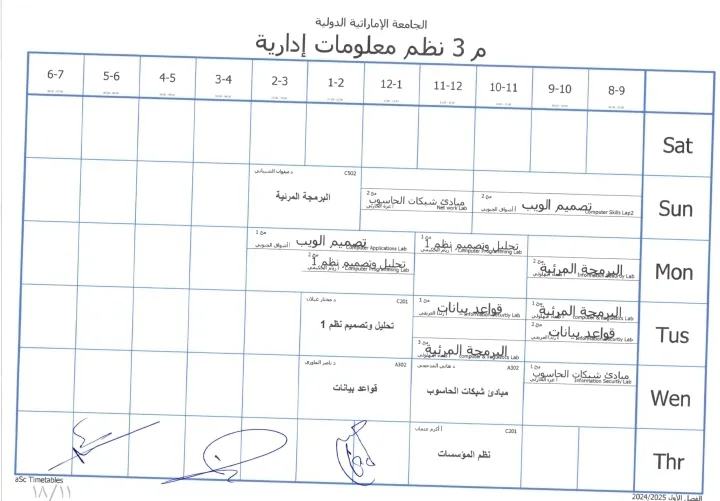 الجامعة الإماراتية الدولية
م 3 نظم معلومات إدارية
8-9
9-10
10-11
11-12
12-1
1-2
2-3
3-4
4-5
5-6
6-7
Sat
Sun
مج 2
تصميم الويب
Computer Skills Lap2
مج 2
مبادئ شبكات الحاسوب
Net work Lab
C502
البرمجة المرئية
Mon
مج 2
البرمجة المرئية
Information Security Lab
مج 1
تحليل وتصميم نظم 1
Computer Programming Lab
مج 1
تصميم الويب
Computer Applications Lab
مج 2
تحليل وتصميم نظم 1
Computer Programming Lab
Tus
مج 1
البرمجة المرئية
مج 2
قواعد بيانات
Information Security Lab
مج 1
قواعد بيانات
Information Security Lab
مج 3
البرمجة المرئية
C201
تحليل وتصميم نظم 1
Wen
مج 1
مبادئ شبكات الحاسوب
Information Security Lab
A302
مبادئ شبكات الحاسوب
A302
قواعد بيانات
Thr
C201
أ أكرم عثمان
نظم المؤسسات
aSc Timetables
١٨/١١
الفصل الأول 2024/2025